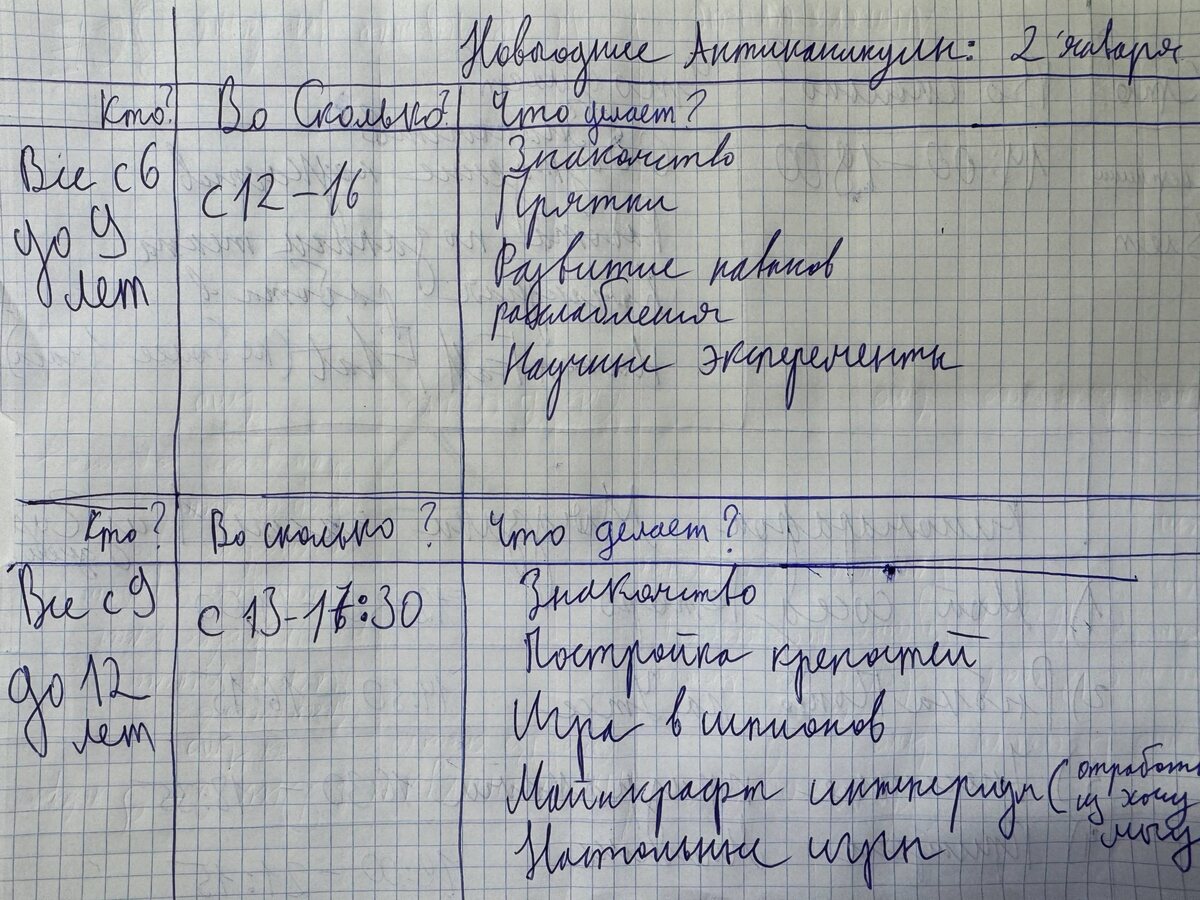 Новогодние Антиканикулы: 2 января
Кто? Во Сколько? Что делает?
Все с 6
до 9
лет
с 12-16
Знакомство
Прятки
Развитие навыков
расслабления
Научные эксперементы
Кто? Во сколько? Что делает?
Все с 9
до 12
лет
с 13-17:30
Знакомство
Постройка крепостей
Игра в шпионов
Майнкрафт (отработка
из хочу
могу
Настольные игры